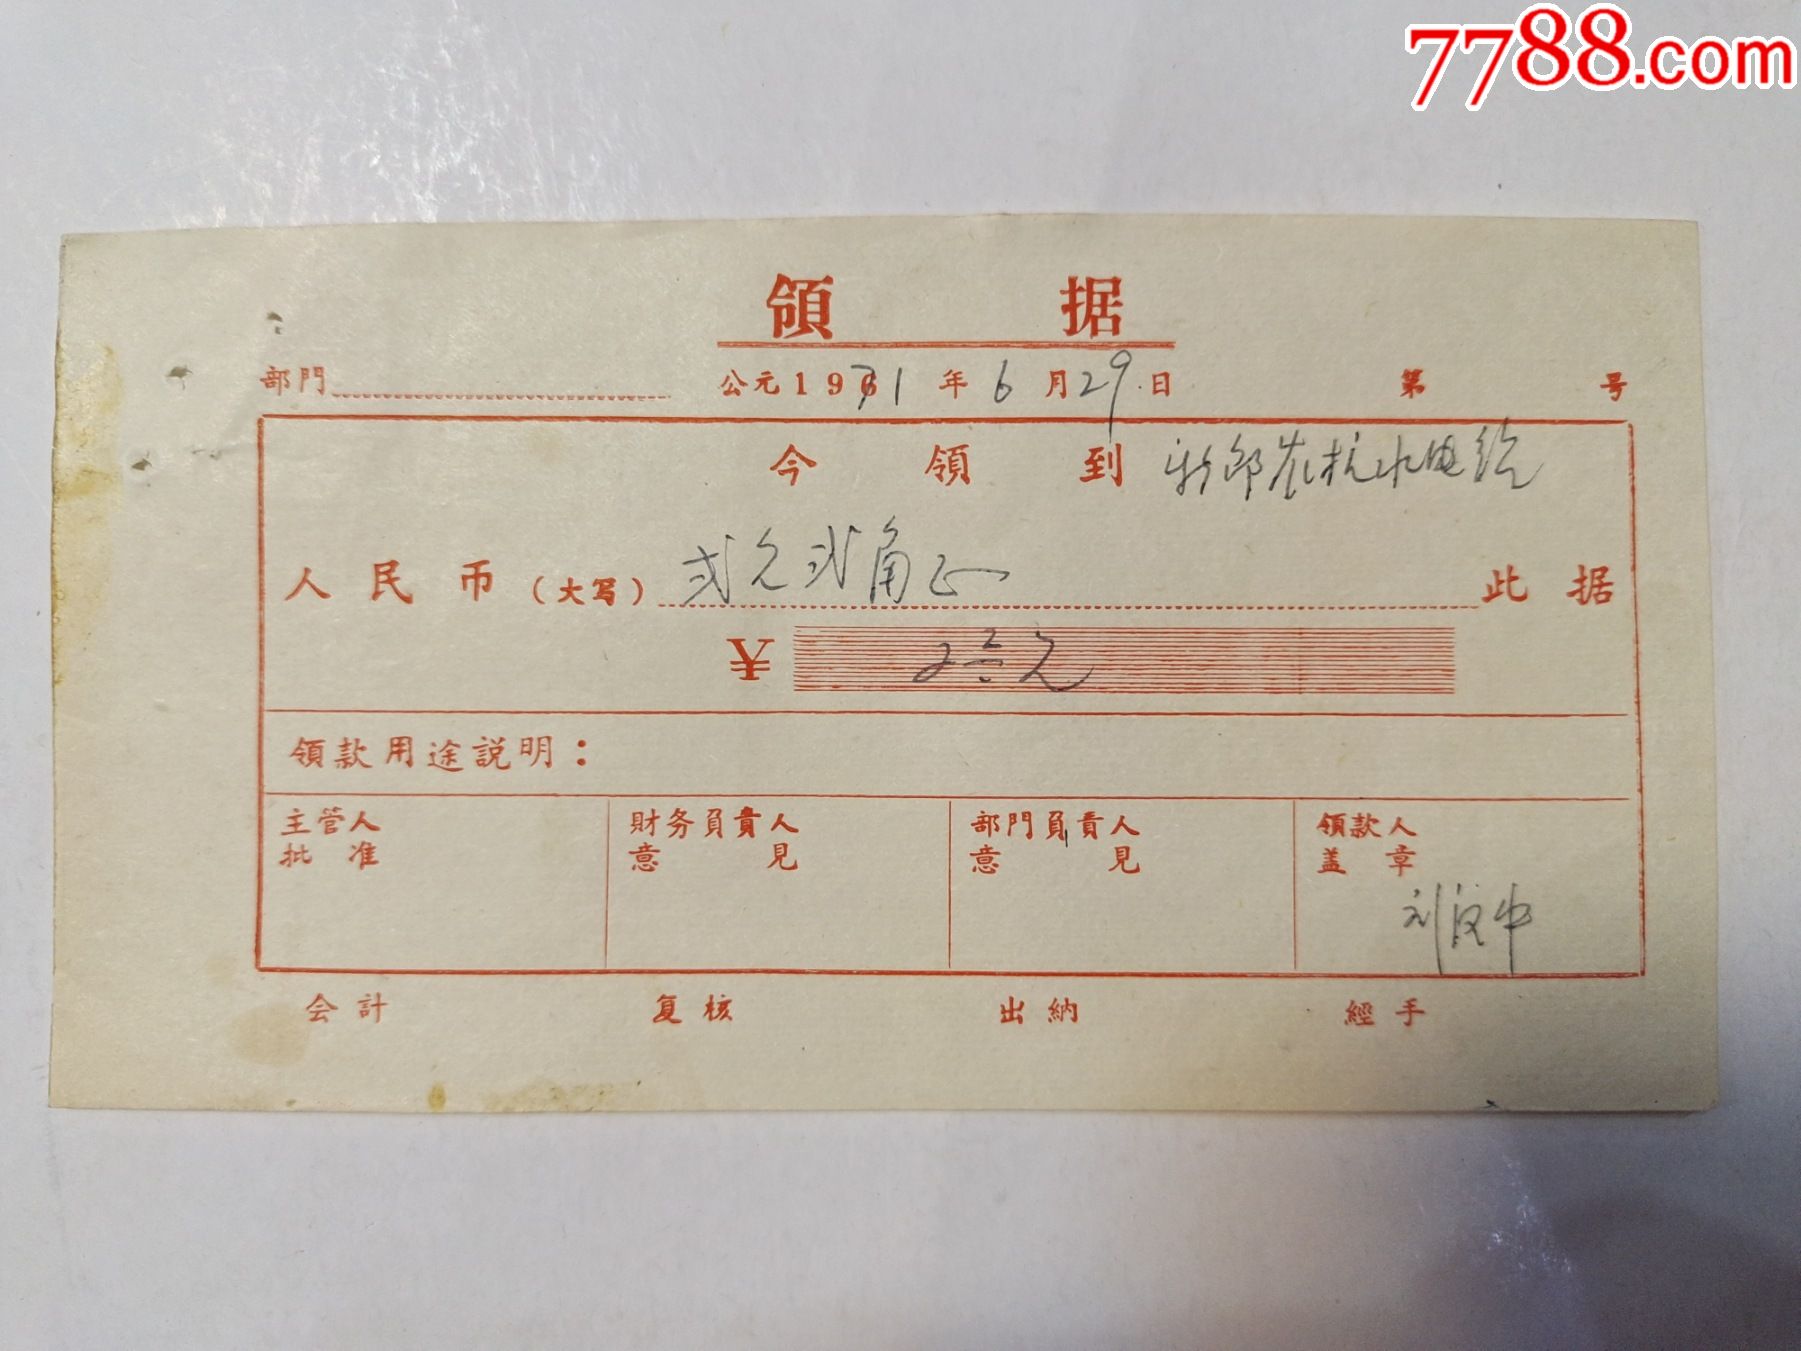 7788.com
領 据
部門 公元1971年6月29日 第 号
今領到 水电
人民币(大写)弍元弍角正 此据
¥ 2 元
領款用途説明：
主管人批准 財务負責人意見 部門負責人意見 領款人盖章
刘
会計 复核 出納 經手